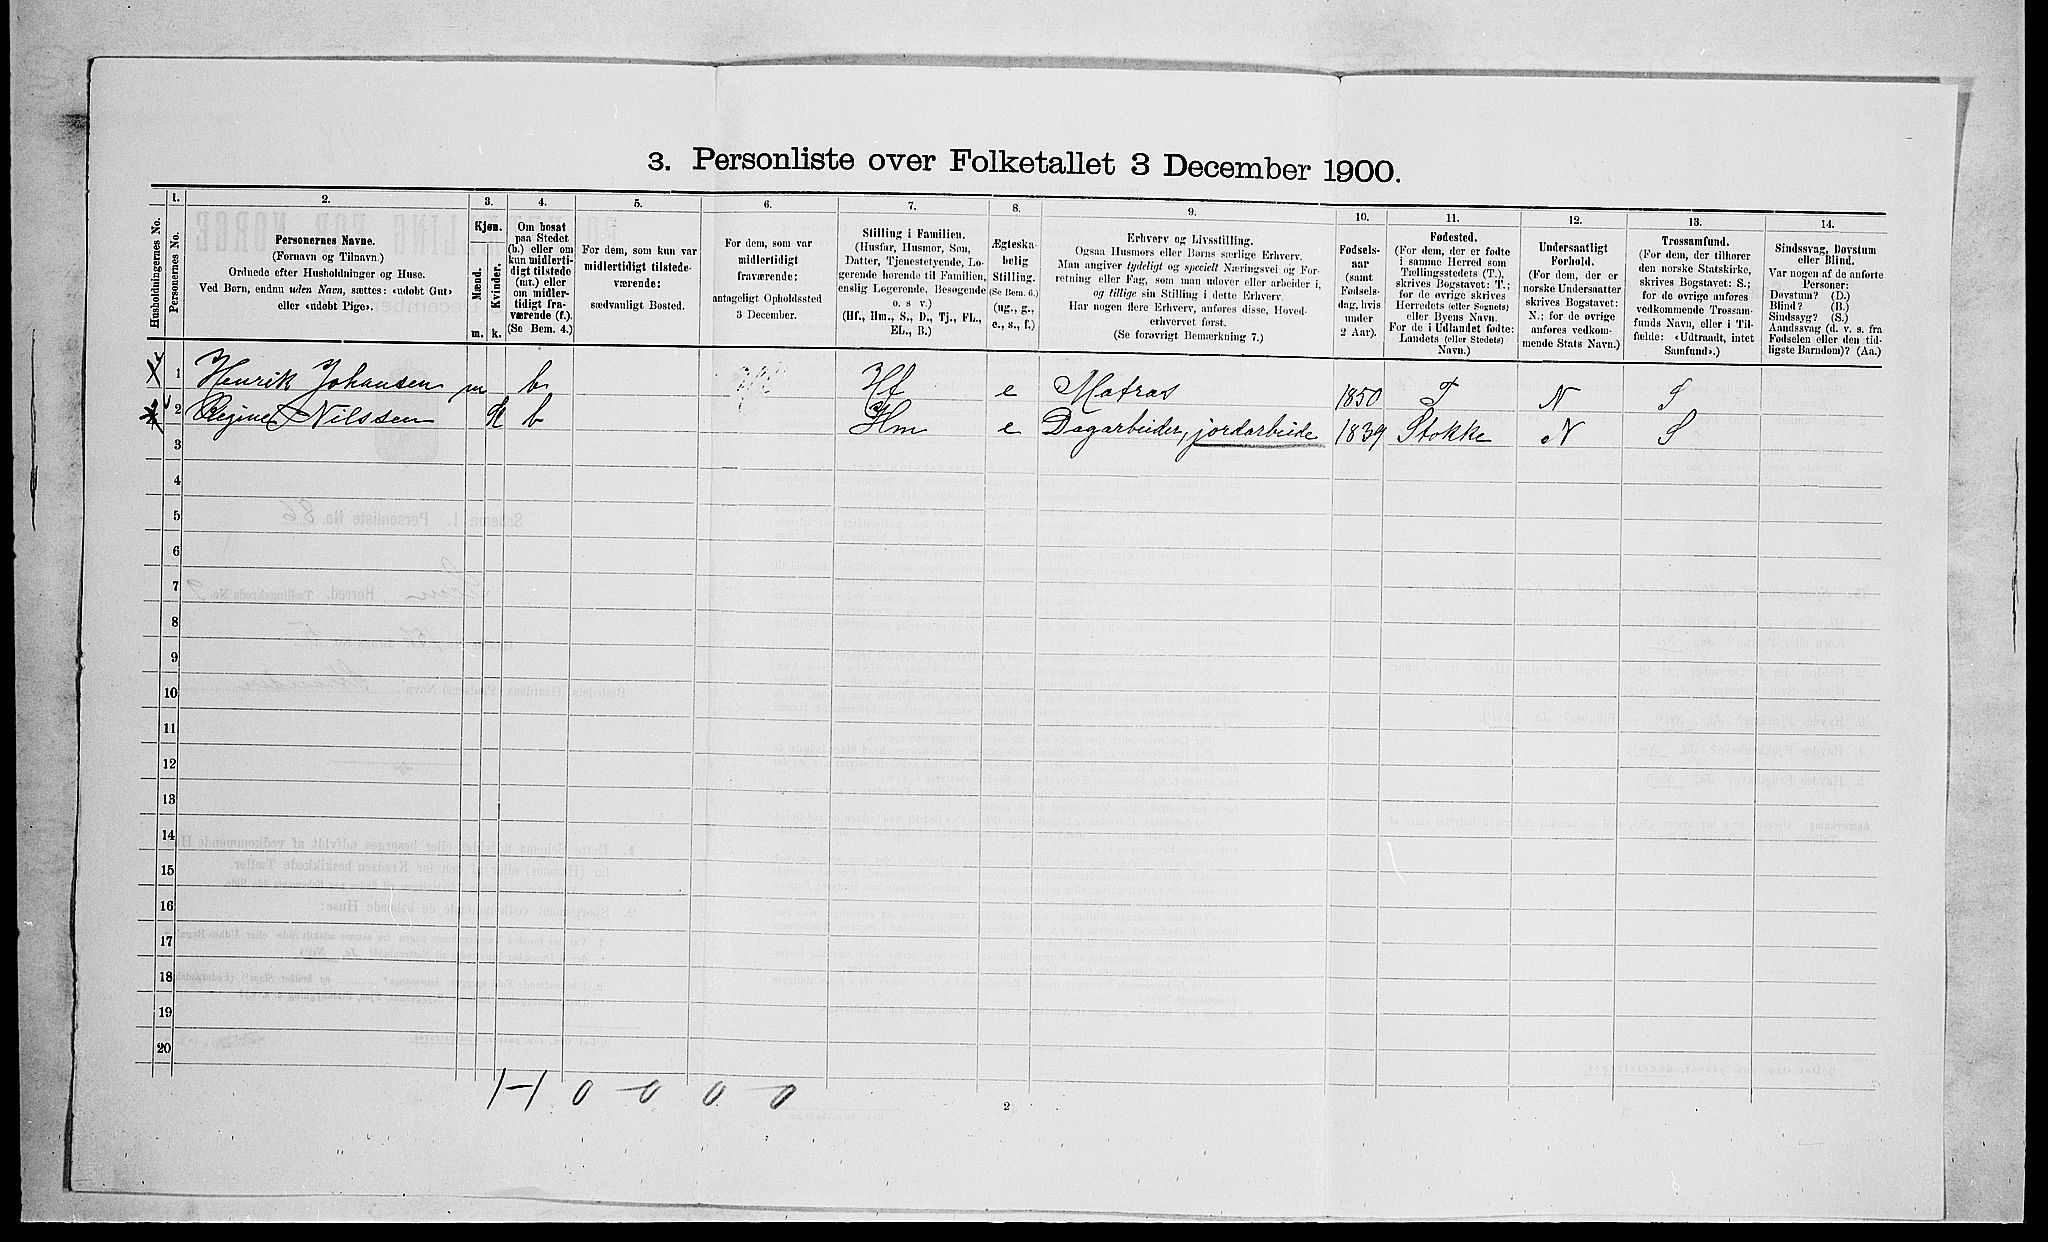 3. Personliste over Folketallet 3 December 1900.
Husholdningernes No.
1.
Personernes No.
2.
Personernes Navne.
(Fornavn og Tilnavn.)
Ordnede efter Husholdninger og Huse.
Ved Børn, endnu uden Navn, sættes: «udøbt Gut»
eller «udøbt Pige».
3.
Kjøn.
Mænd.
Kvinder.
m. k.
4.
Om bosat
paa Stedet
(b.) eller om
kun midlerti-
digt tilstede
(mt.) eller
om midler-
tidigt fra-
værende (f.).
(Se Bem. 4.)
5.
For dem, som kun var
midlertidigt tilstede-
værende:
sædvanligt Bosted.
6.
For dem, som var
midlertidigt
fraværende:
antageligt Opholdssted
3 December.
7.
Stilling i Familien.
(Husfar, Husmor, Søn,
Datter, Tjenestetyende, Lo-
gerende hørende til Familien,
enslig Logerende, Besøgende
o. s v.)
(Hf., Hm., S., D., Tj., FL.,
EL., B.)
8.
Ægteska-
belig
Stilling.
(Se Bem. 6.)
(ug., g.,
e., s., f.)
9.
Erhverv og Livsstilling.
Ogsaa Husmors eller Børns særlige Erhverv.
Man angiver tydeligt og specielt Næringsvei og For-
retning eller Fag, som man udøver eller arbeider i,
og tillige sin Stilling i dette Erhverv.
Har nogen flere Erhverv, anføres disse, Hoved-
erhvervet først.
(Se forøvrigt Bemærkning 7.)
10.
Fødsels-
aar
(samt
Fødsels-
dag, hvis
under
2 Aar).
11.
Fødested.
(For dem, der er fødte
i samme Herred som
Tællingsstedets (T.),
skrives Bogstavet: T.;
for de øvrige skrives
Herredets (eller Sognets)
eller Byens Navn.
For de i Udlandet fødte:
Landets (eller Stedets)
Navn.)
12.
Undersaatligt
Forhold.
(For dem, der er
norske Undersaatter
skrives Bogstavet:
N.; for de øvrige
anføres vedkom-
mende Stats Navn.)
13.
Trossamfund.
(For dem, der tilhører
den norske Statskirke,
skrives Bogstavet: S.;
for de øvrige anføres
vedkommende Trossam-
funds Navn, eller i Til-
fælde: «Udtraadt, intet
Samfund».)
14.
Sindssvag, Døvstum
eller Blind.
Var nogen af de anførte
Personer:
Døvstum? (D.)
Blind? (B.)
Sindssyg? (S.)
Aandssvag (d. v. s. fra
Fødselen eller den tid-
ligste Barndom)? (Aa.)
1 Henrik Johansen m b Hf e Matros 1850 T N S
2 Regine Nilssen K b Hm e Dagarbeider, jordarbeide 1839 Stokke N S
3
4
5
6
7
8
9
10
11
12
13
14
15
16
17
18
19
20
1-1 0 0 0 0
2